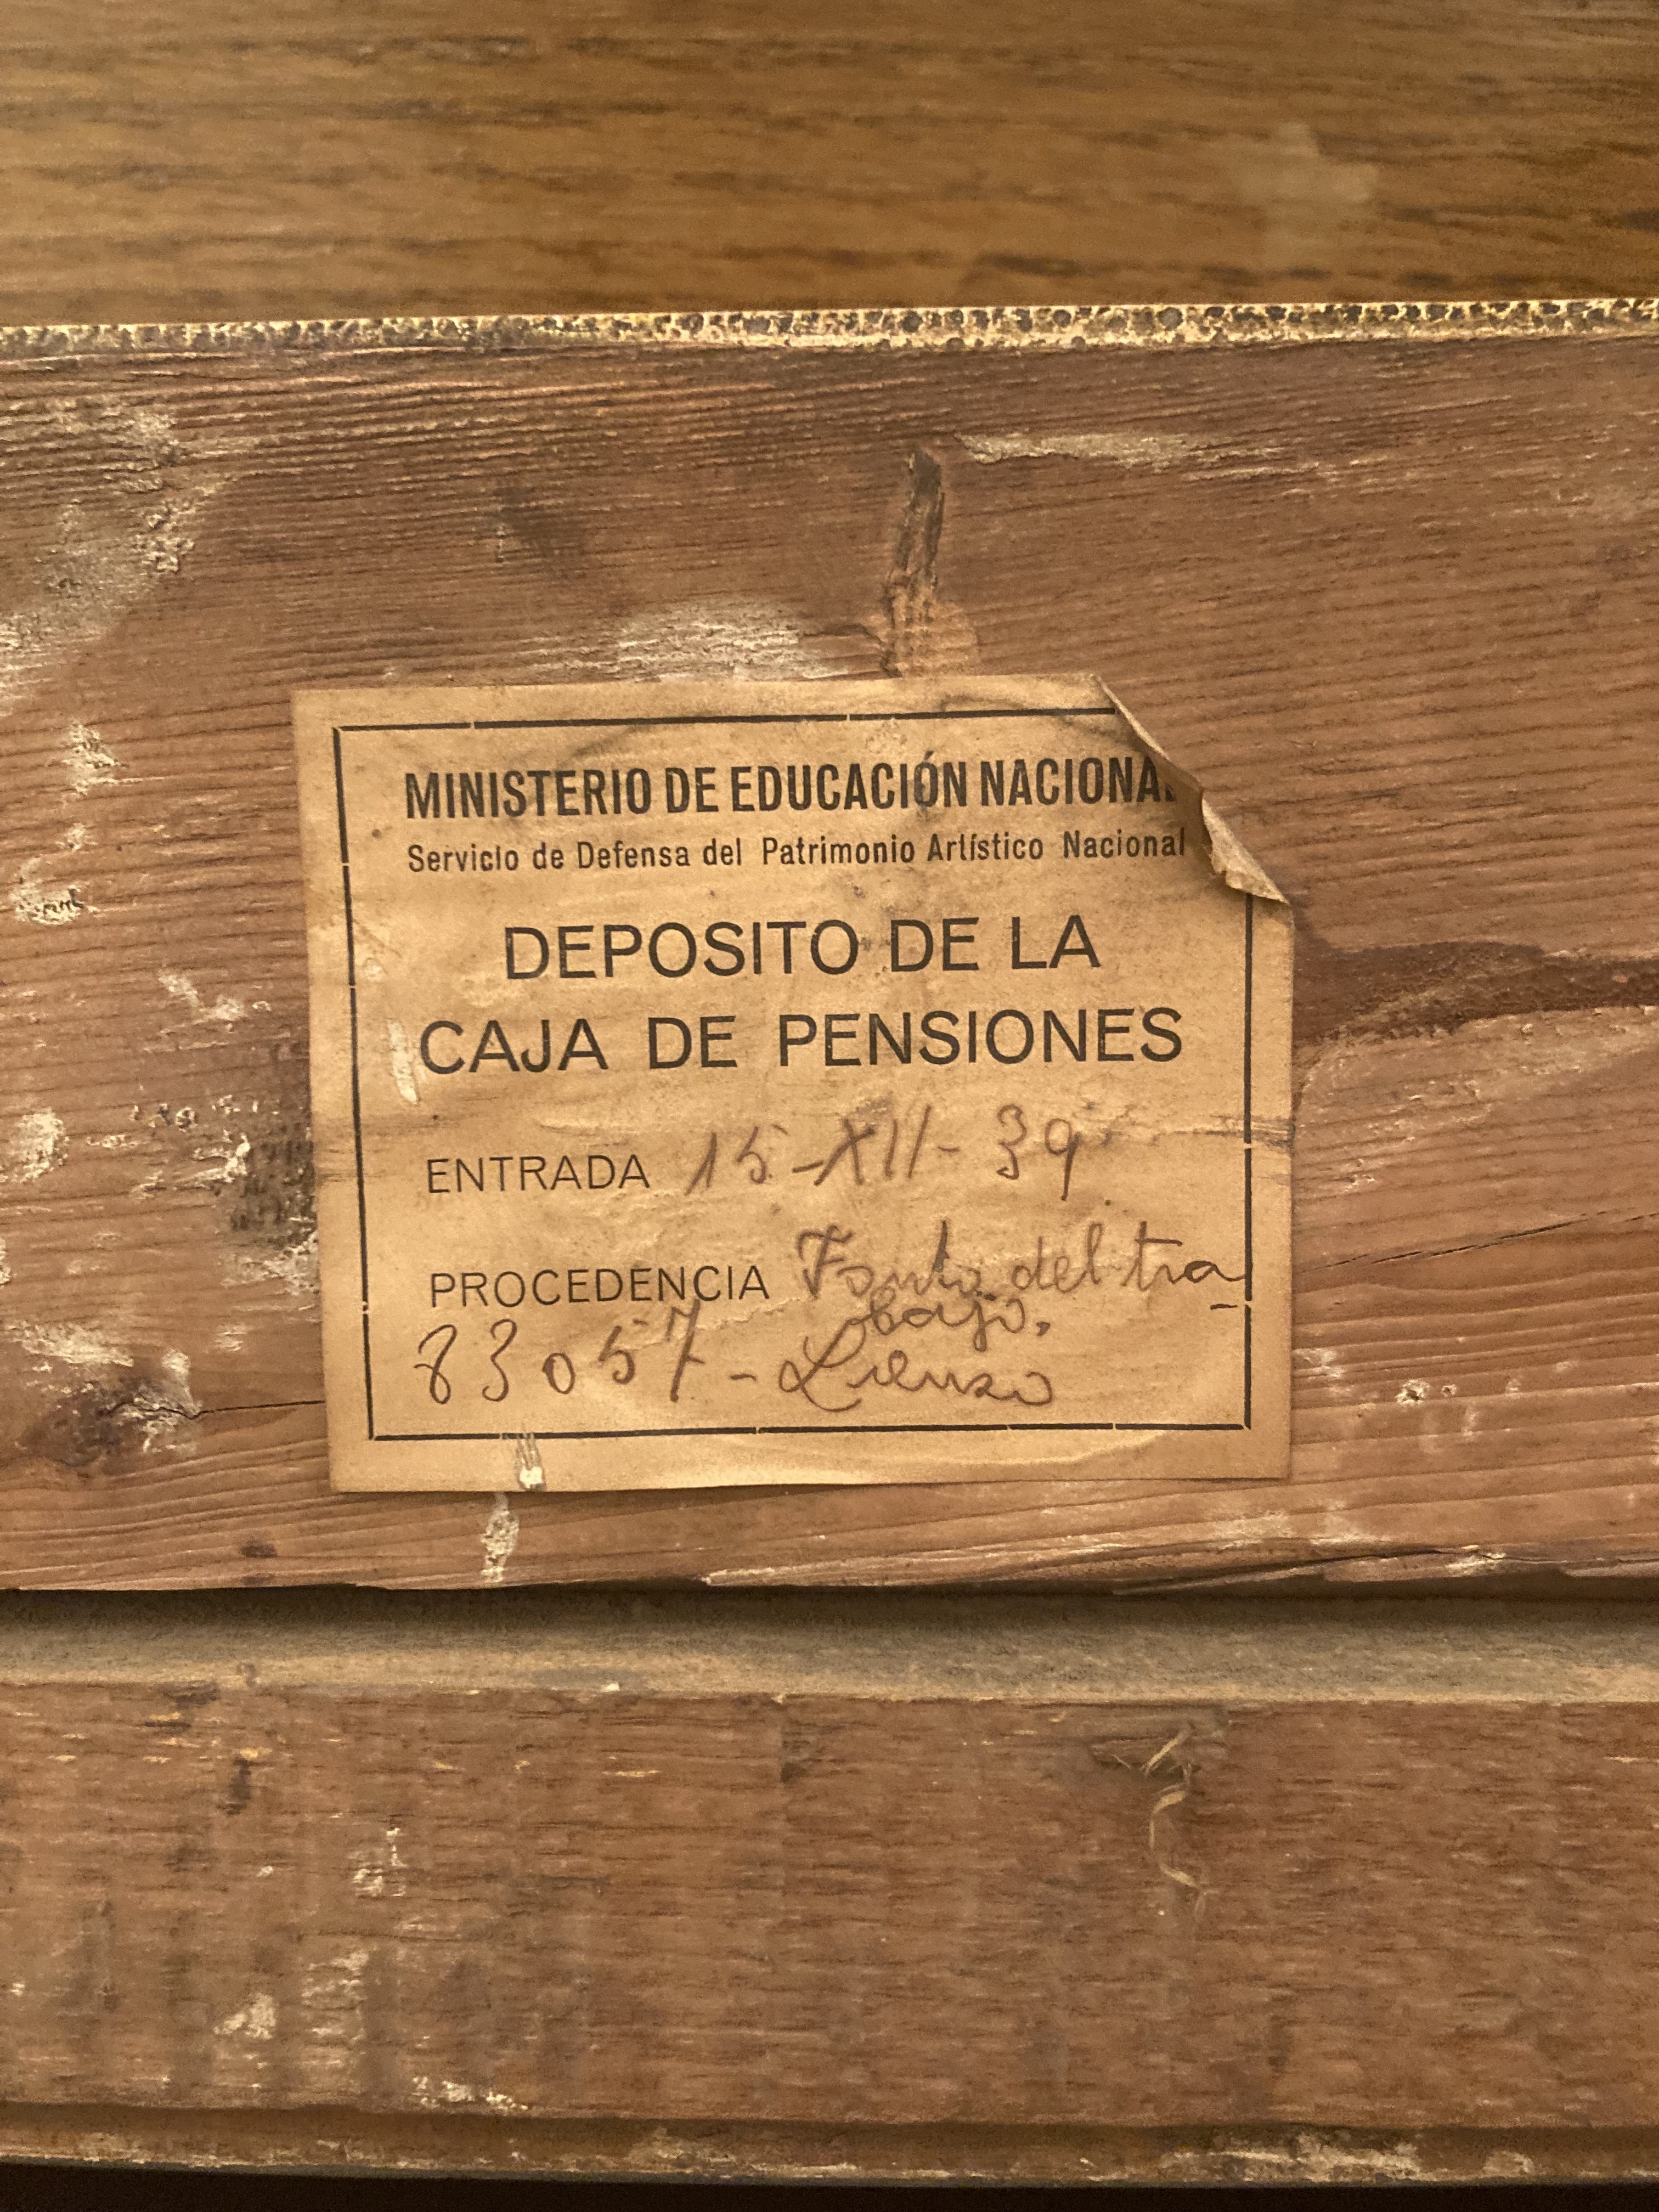 MINISTERIO DE EDUCACIÓN NACIONAL
Servicio de Defensa del Patrimonio Artístico Nacional
DEPOSITO DE LA
CAJA DE PENSIONES
ENTRADA 15-XII-39
PROCEDENCIA del tra-
bajo.
83057-Lienzo